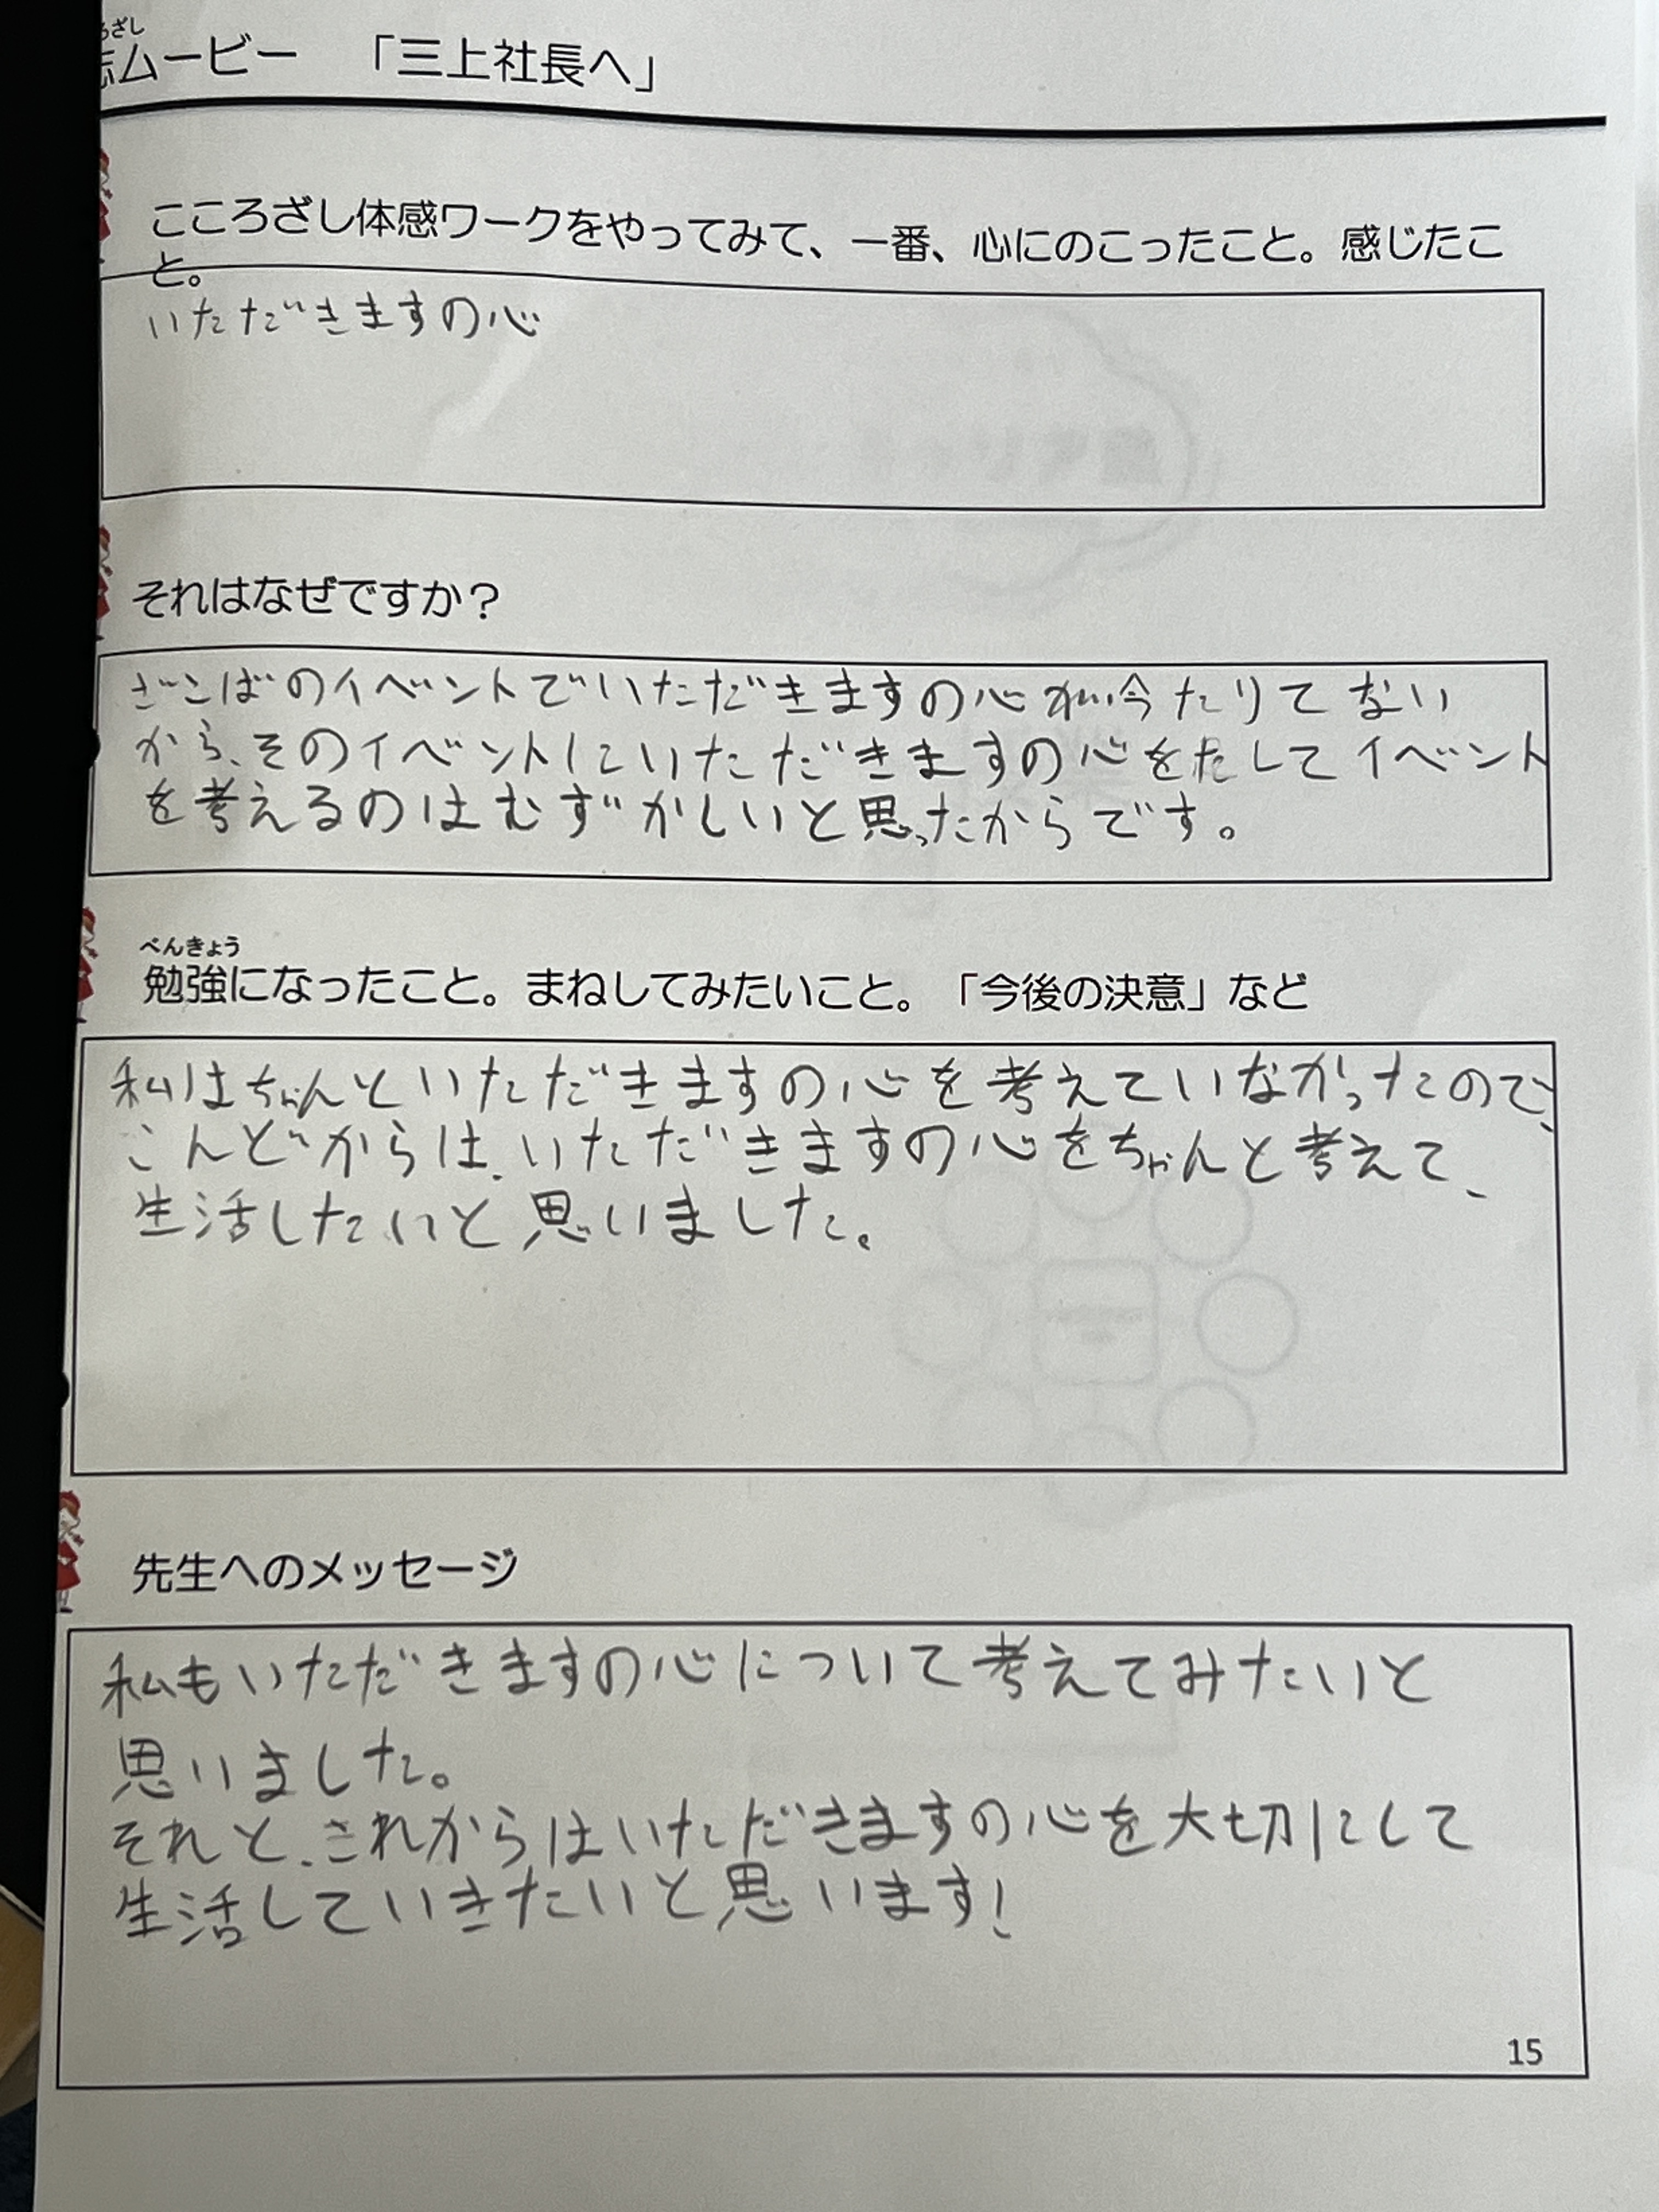 ろざし
志ムービー 「三上社長へ」
こころざし体感ワークをやってみて、一番、心にのこったこと。感じたこ
と。
いただきますの心
それはなぜですか？
ざこばのイベントでいただきますの心が今たりてない
から、そのイベントにいただきますの心をたしてイベント
を考えるのはむずかしいと思ったからです。
べんきょう
勉強になったこと。まねしてみたいこと。「今後の決意」など
私はちゃんといただきますの心を考えていなかったので、
こんどからは、いただきますの心をちゃんと考えて、
生活したいと思いました。
先生へのメッセージ
私もいただきますの心について考えてみたいと
思いました。
それと、これからはいただきますの心を大切にして
生活していきたいと思います!
15